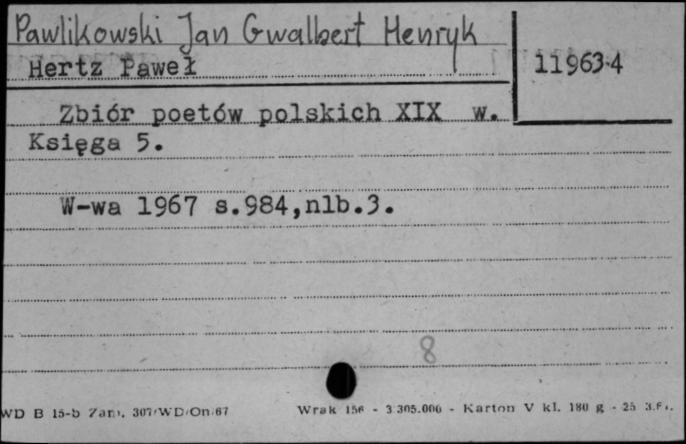 Pawlikowski Jan Gwalbert Henryk
Hertz Paweł
119634
Zbiór poetów polskich XIX w.
Księga 5.
W-wa 1967 s.984,nlb.3.
8
WD B 15-b Zam. 307/WD/On/67 Wrak 156 - 3.305.000 - Karton V kl. 180 g - 25